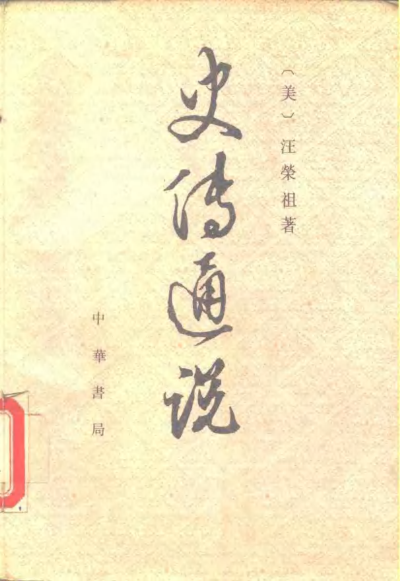 〔美〕汪榮祖著
史傳通说
中華書局